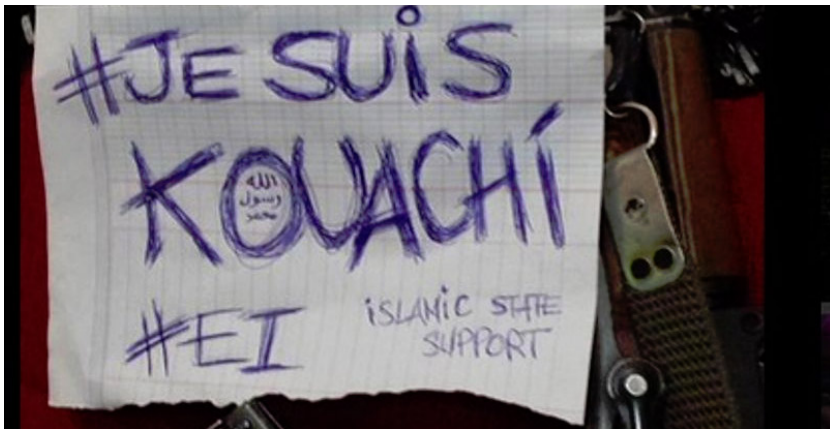 #JE SUiS
KOUACHi
الله
رسول
محمد
#EI
iSLAMiC STATE
SUPPORT